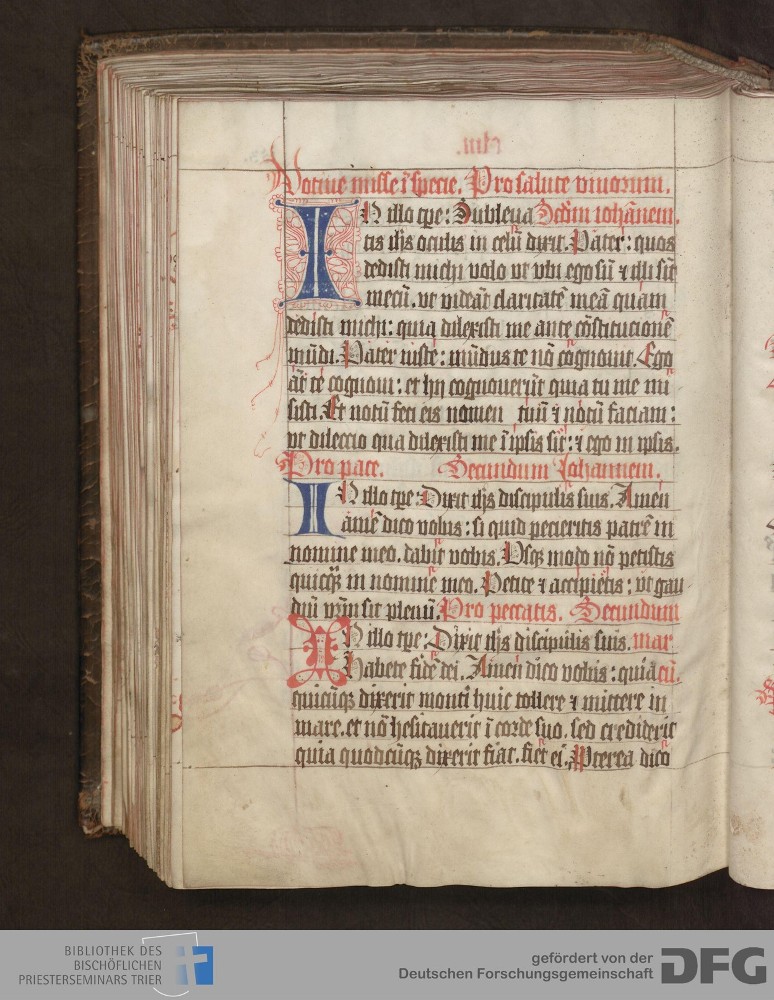 Votiue misse ī specie. Pro salute viuorum.
IN illo tp̄e: Subleua Scd̄m iohānem.
tis ih̄s oculis in celū dixit. Pater: quos
dedisti michi volo vt vbi ego sū ⁊ illi sīt
mecū. vt videāt claritatē meā quam
dedisti michi: quia dilexisti me ante cōstitucionē
mūdi. Pater iuste: mūdus te nō cognouit. Ego
āt te cognoui: et hij cognouerūt quia tu me mi
sisti. Et notū feci eis nomen tuū ⁊ notū faciam:
vt dileccio qua dilexisti me ī ipsis sit: ⁊ ego in ipsis.
Pro pace. Secundum Iohannem.
IN illo tp̄e: Dixit ih̄s discipulis suis. Amen
amē dico vobis: si quid pecieritis patrē in
nomine meo. dabit vobis. Vsqꝫ modo nō petistis
quicqꝫ in nomine meo. Petite ⁊ accipietis: vt gau
diū vr̄m sit plenū. Pro peccatis. Secundum
IN illo tp̄e: Dixit ih̄s discipulis suis. mar
Habete fidē dei. Amen dico vobis: quia cū.
quicūqꝫ dixerit monti huic tollere ⁊ mittere in
mare. et nō hesitauerit ī corde suo. sed crediderit
quia quodcūqꝫ dixerit fiat. fiet ei. Pterea dico
BIBLIOTHEK DES
BISCHÖFLICHEN
PRIESTERSEMINARS TRIER
gefördert von der
Deutschen Forschungsgemeinschaft DFG